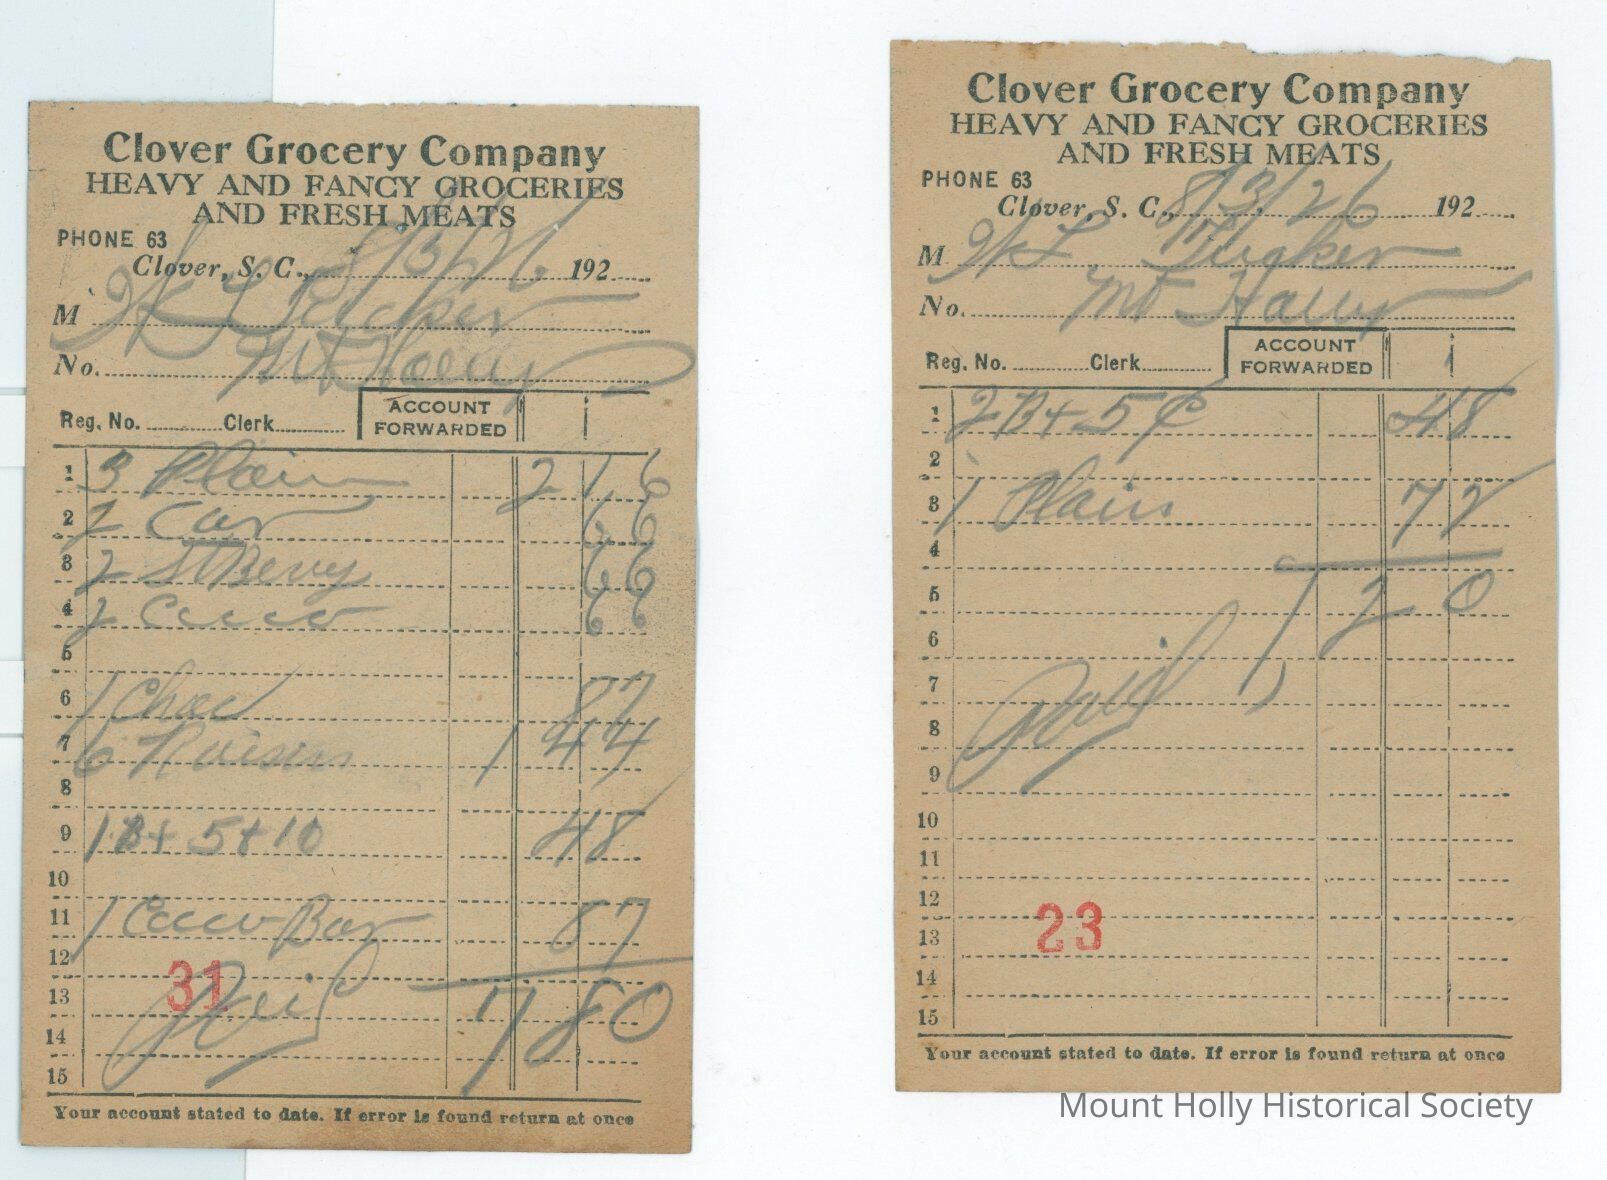 Clover Grocery Company
HEAVY AND FANCY GROCERIES
AND FRESH MEATS
PHONE 63
Clover, S. C., 8/3/26. 192
M W L Tucker
No. Mt Holly
Reg. No. Clerk
ACCOUNT
FORWARDED
1 3 Plain 2 16
2 2 Car 66
3 2 StBerry 66
4 2 Coco 66
5
6 1 Choc 87
7 6 Raisin 1 44
8
9 1 B+ 5+10 48
10
11 1 Coco Bar 87
12
31
13 Paid 7 80
14
15
Your account stated to date. If error is found return at once
Clover Grocery Company
HEAVY AND FANCY GROCERIES
AND FRESH MEATS
PHONE 63
Clover, S. C., 8/3/26 192
M W L Tucker
No. Mt Holly
Reg. No. Clerk
ACCOUNT
FORWARDED
1 2 B+ 5¢ 48
2
3 1 Plain 72
4
5 1 20
6
7 Paid
8
9
10
11
12
23
13
14
15
Your account stated to date. If error is found return at once
Mount Holly Historical Society